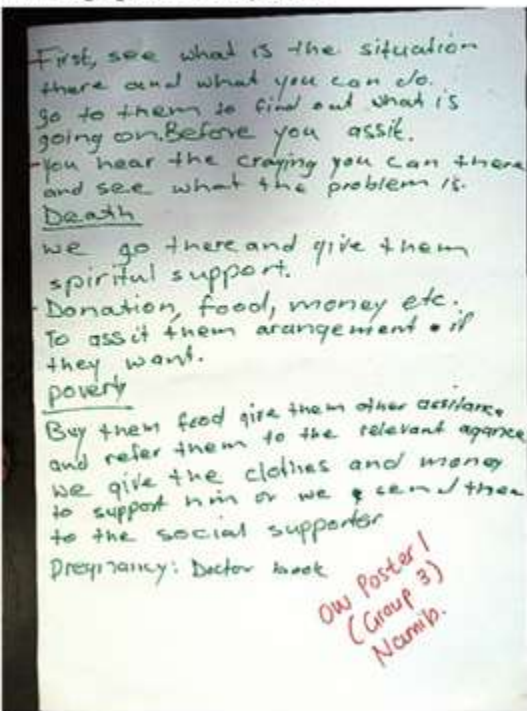 First, see what is the situation
there and what you can do.
go to them to find out what is
going on. Before you assit.
- You hear the craying you can there
and see what the problem is.
Death
we go there and give them
spiritul support.
- Donation, food, money etc.
To assit them arangement if
they want.
poverty
Buy them food give them other assitance
and refer them to the relevant agance
we give the clothes and money
to support him or we send them
to the social supporter
Pregnancy: Doctor
OW Poster 1
(Group 3)
Namib.